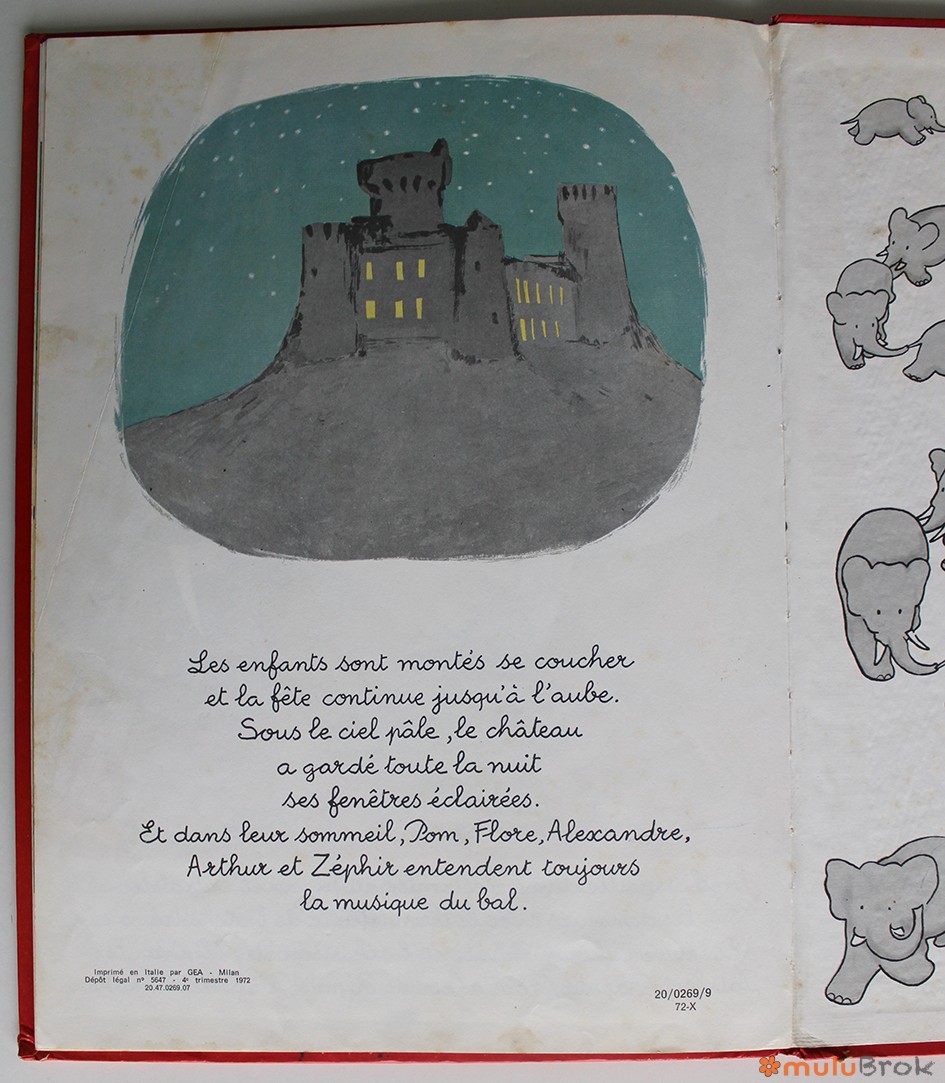 Les enfants sont montés se coucher
et la fête continue jusqu'à l'aube.
Sous le ciel pâle, le château
a gardé toute la nuit
ses fenêtres éclairées.
Et dans leur sommeil, Pom, Flore, Alexandre,
Arthur et Zéphir entendent toujours
la musique du bal.
Imprimé en Italie par GEA - Milan
Dépôt légal n° 5647 - 4e trimestre 1972
20.47.0269.07
20/0269/9
72-X
muluBrok